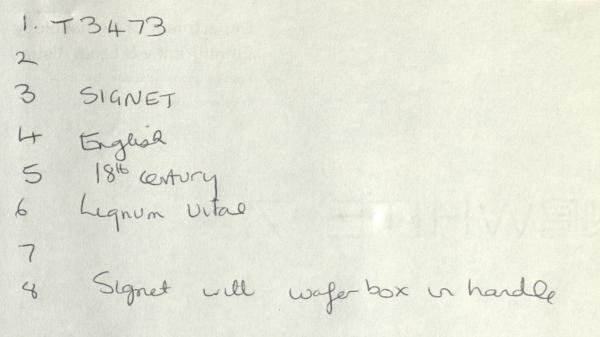 1. T3473
2
3 SIGNET
4 English
5 18th century
6 Lignum vitae
7
8 Signet will wafer box in handle